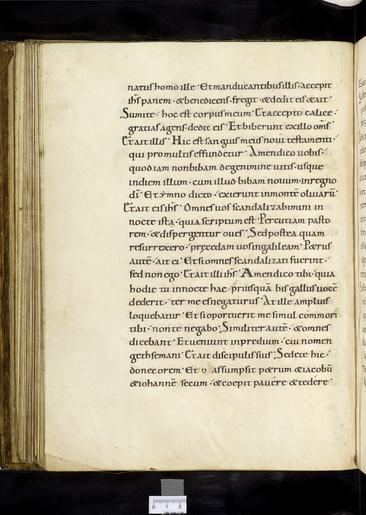 natus homo ille · Et manducantibus illis · accepit
ihs panem · & benedicens · fregit · & dedit eis · & ait
Sumite · hoc est corpus meum · Et accepto calice ·
gratias agens · dedit eis · Et biberunt ex illo oms ·
Et ait illis · Hic est sanguis meus novi testamenti ·
qui pro multis effundetur · Amen dico vobis ·
quod iam non bibam de genimine vitis · usque
in diem illum · cum illud bibam novum · in regno
di · Et ymno dicto · exierunt in monte olivarū
Et ait eis ihs · Omnes vos scandalizabimini in
nocte ista · quia scriptum est · Percutiam pasto
rem · & dispergentur oves · Sed postea quam
resurrexero · praecedam vos in galileam · Petrus
autē · ait ei · Et si omnes scandalizati fuerint ·
sed non ego · Et ait illi ihs · Amen dico tibi · quia
hodie tu in nocte hac · priusquā bis gallus vocē
dederit · ter me es negaturus · At ille amplius
loquebatur · Et si oportuerit me simul commori
tibi · non te negabo · Similiter autē · & omnes
dicebant · Et veniunt in predium · cui nomen
gethsemani · Et ait discipulis suis · Sedete hic ·
donec orem · Et assumpsit petrum & iacobū
& iohannē secum · & coepit pavere & tedere ·